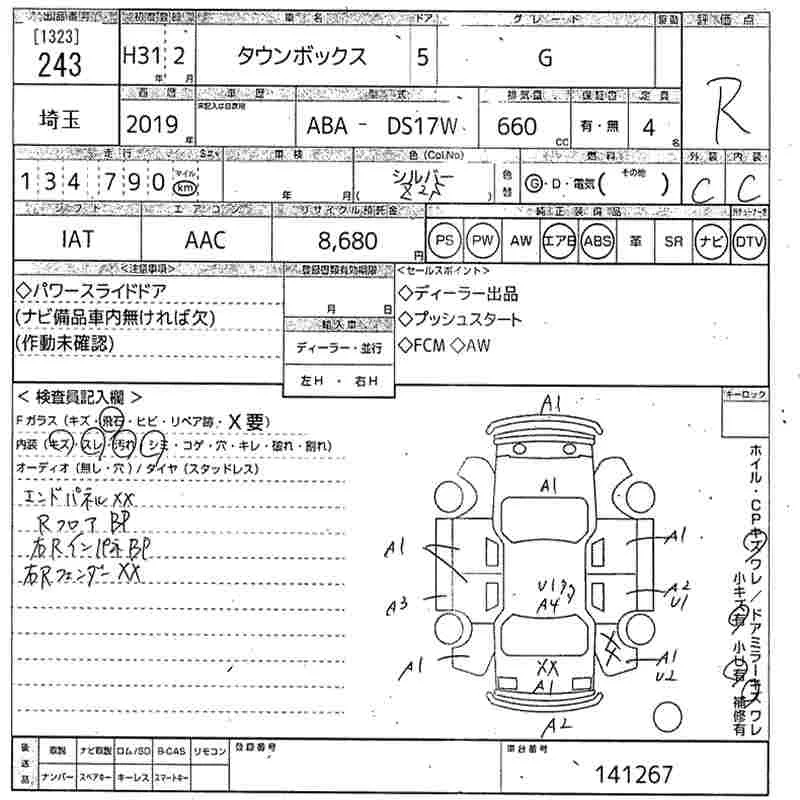 出品番号 初度登録 車名 ドア グレード 評価点
[1323]
243 H31 2 タウンボックス 5 G R
年 月
西暦 車歴 型式 排気量 保証書 定員
未記入は自家用
埼玉 2019 年 ABA - DS17W 660 cc 有・無 4 名
走行 車検 色(Col.No) 燃料 外装 内装
134790 マイル km 年 月 シルバー Z2S 色替 G・D・電気( その他 ) C C
シフト エアコン リサイクル預託金 純正装備品
IAT AAC 8,680 円 PS PW AW エアB ABS 革 SR ナビ DTV
<注意事項> 登録書類有効期限 <セールスポイント>
◇パワースライドドア
(ナビ備品車内無ければ欠)
(作動未確認)
月 日
輸入車
ディーラー・並行
左H ・ 右H
◇ディーラー出品
◇プッシュスタート
◇FCM ◇AW
<検査員記入欄> キーロック
Fガラス(キズ・飛石・ヒビ・リペア跡・X要)
内装(キズ・スレ・汚れ・シミ・コゲ・穴・キレ・破れ・割れ)
オーディオ(無し・穴)/タイヤ(スタッドレス)
エンドパネルXX
RフロアBP
右RインパネBP
右RフェンダーXX
A1
A1
A1 A1
U1
A4
A3 A2
U1
A1 XX XX A1
U2
A1
A2
ホイル・CPキズワレ/ドアミラーキズワレ
小キズ有 小U有 補修有
後送品 取説 ナビ取説 ロム/SD B-CAS リモコン 登録番号 車台番号
ナンバー スペアキー キーレス スマートキー 141267